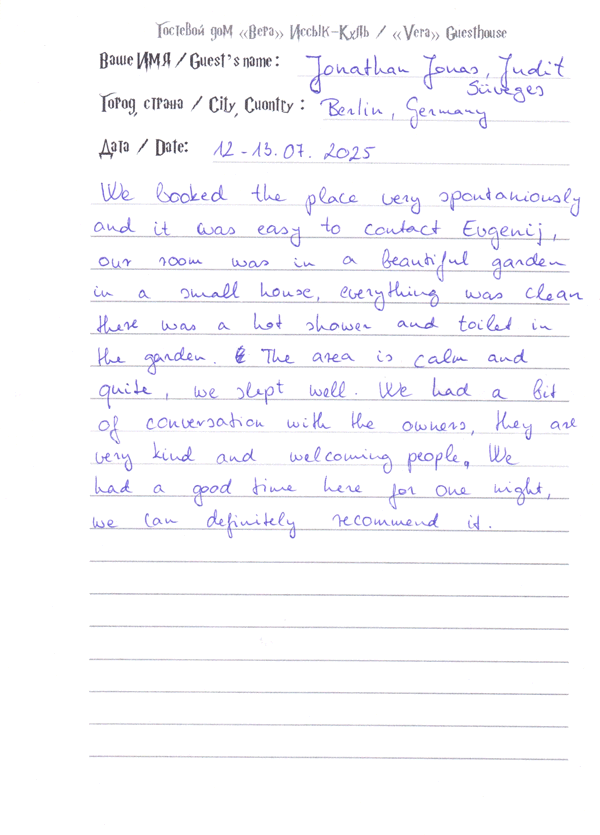 Гостевой дом «Вера» Иссык-Куль / «Vera» Guesthouse
Ваше ИМЯ / Guest's name: Jonathan Jonas, Judit
Süveges
Город, страна / City, Cuontry: Berlin, Germany
Дата / Date: 12-13.07.2025
We booked the place very spontaniously
and it was easy to contact Evgenij,
our room was in a beautiful garden
in a small house, everything was clean
there was a hot shower and toilet in
the garden. The area is calm and
quite, we slept well. We had a bit
of conversation with the owners, they are
very kind and welcoming people. We
had a good time here for one night,
we can definitely recommend it.